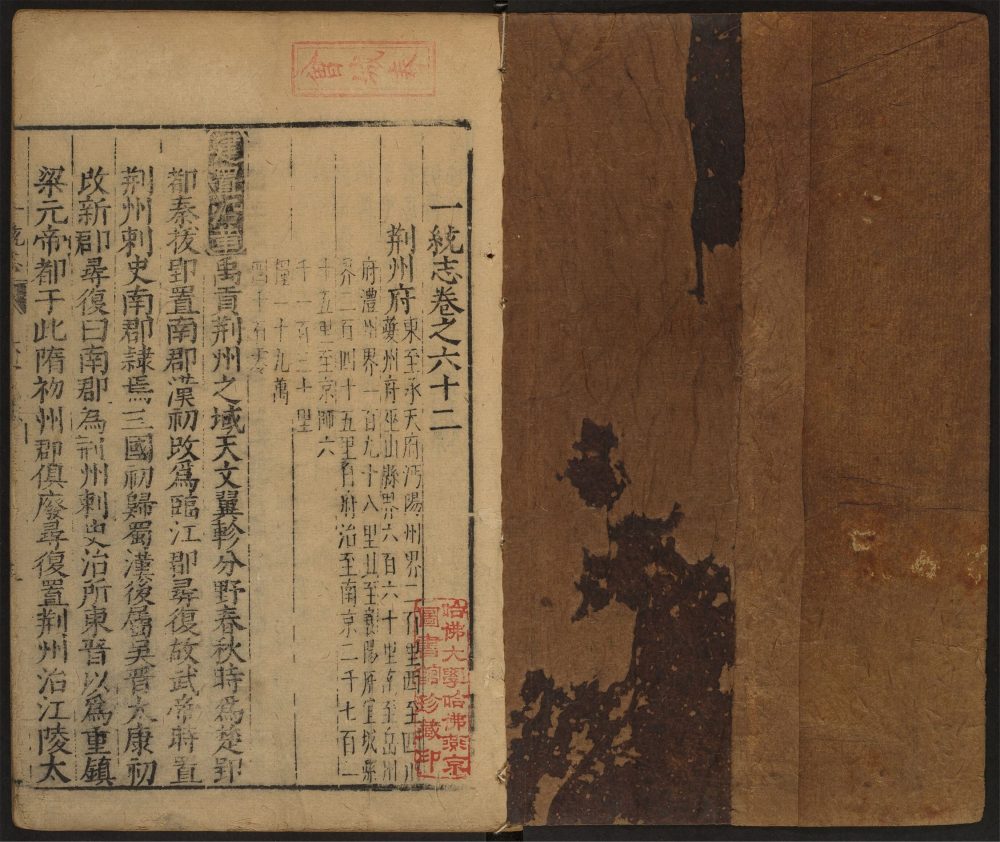 一統志卷之六十二
荆州府
東至承天府沔陽州界一百里西至四川
夔州府巫山縣界六百六十里南至岳州
府澧州界一百九十八里北至襄陽府宜城縣
界二百四十五里自府治至南京二千七百一
十五里至京師六
千一百三十里
徑一十九萬
四千有零
建置沿革禹貢荆州之域天文翼軫分野春秋時爲楚郢
都秦拔郢置南郡漢初改爲臨江郡尋復故武帝時置
荆州刺史南郡隷焉三國初歸蜀漢後屬吳晋太康初
改新郡尋復曰南郡為荆州刺史治所東晋以爲重鎮
梁元帝都于此隋初州郡俱廢尋復置荆州治江陵太
哈佛大學哈佛燕京
圖書館珍藏印